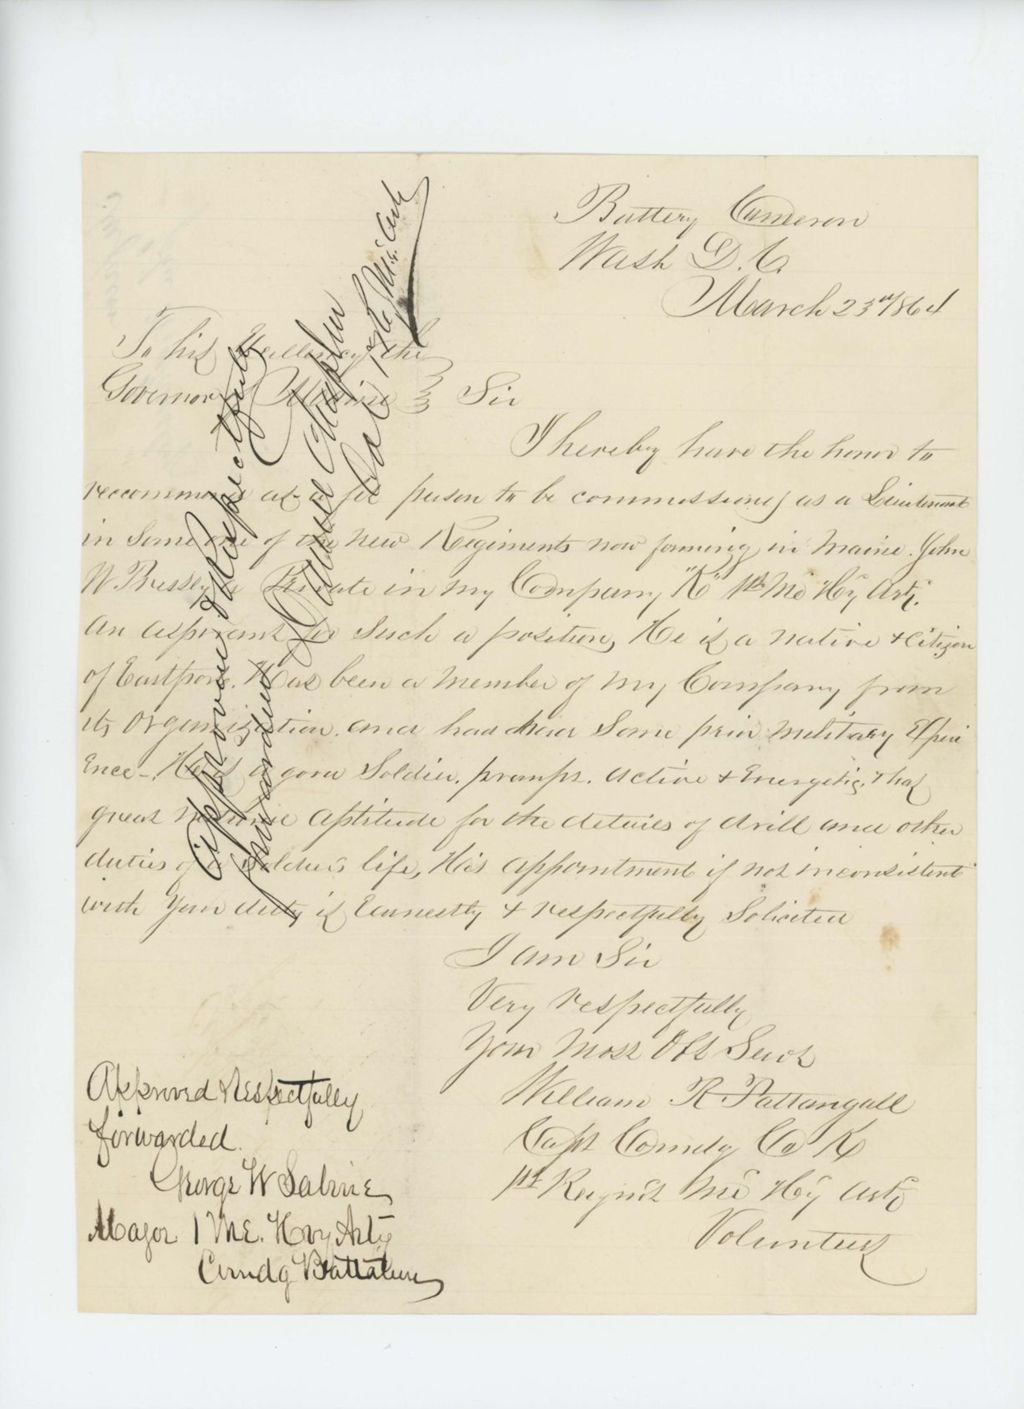 Battery Cameron
Wash D.C.
March 23rd/864
To his Excellency the
Governor of Maine } Sir
I hereby have the honor to
reccommend as a fit person to be commissioned as a Lieutenant
in Some one of the new Regiments now forming in Maine. John
W. Bressley a Private in my Company "K" 1st Me Hy Arty.
An aspirant for Such a position, He is a native & Citizen
of Eastport. Has been a member of my Company from
its Organization. and had Some prior Military Experi
ence-. He is a good Soldier. prompt. active & Energetic, & has
great native aptitude for the details of drill and other
duties of a Soldiers life, His appointment if not inconsistent
with your duty is Earnestly & respectfully Solicited
I am Sir
Very respectfully
Your Most Obt Servt
William R. Pattangall
Capt Comdg Co K
1st Regmt Me Hy Arty
Volunteers
Approved & Respectfully
forwarded
George W Sabine
Major 1 ME. Hvy Arty
Comdg Battalion
Approved & Respectfully
forwarded Daniel Chaplin
Col 1st Me Arty